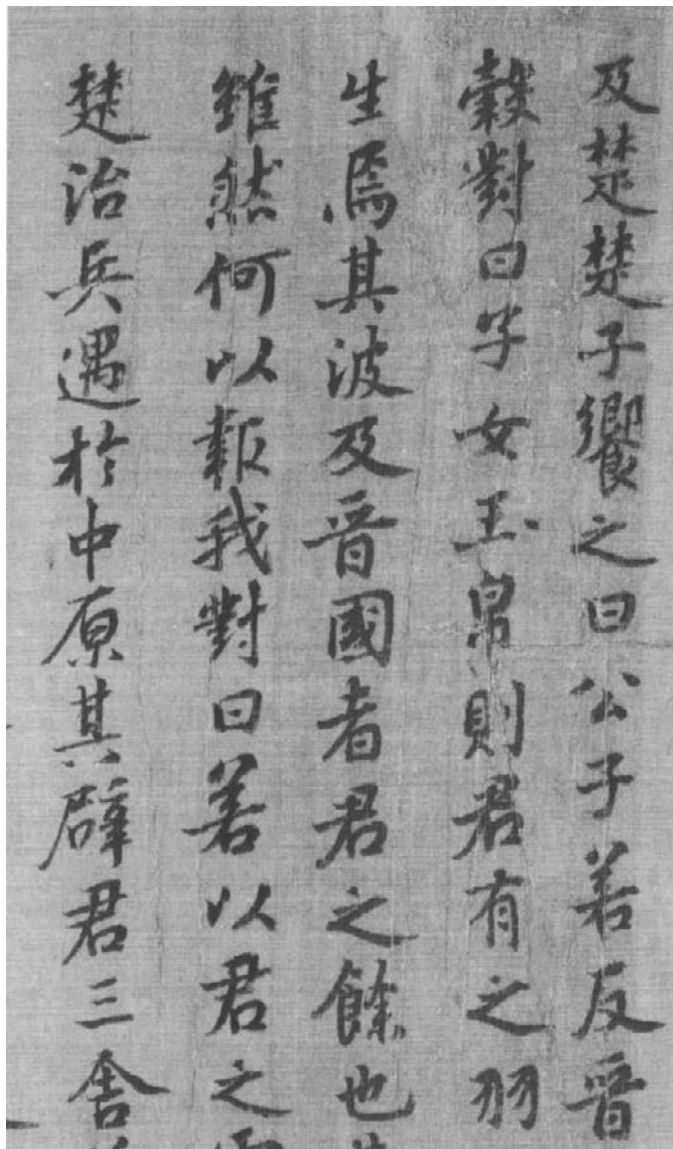 及楚楚子饗之曰公子若反晉
穀對曰子女玉帛則君有之羽
生焉其波及晉國者君之餘也
雖然何以報我對曰若以君之
楚治兵遇於中原其辟君三舍